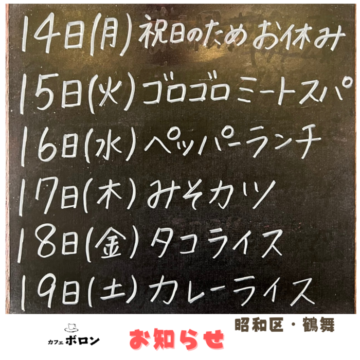 14日(月) 祝日のため お休み
15日(火) ゴロゴロ ミートスパ
16日(水) ペッパーランチ
17日(木) みそカツ
18日(金) タコライス
19日(土) カレーライス
昭和区・鶴舞
カフェ ボロン
お知らせ